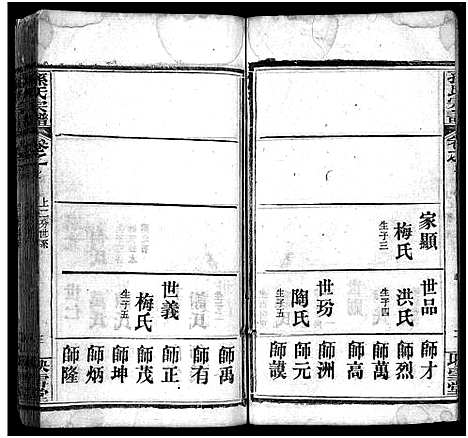 孫氏宗譜
家顯
梅氏
生子三
世品
洪氏
生子四
世玢
陶氏
生子五
師才
師烈
師萬
師高
師洲
師元
師謨
孫氏宗譜
卷之
世義
梅氏
生子五
師禹
師有
師正
師茂
師坤
師炳
師隆
映雪堂